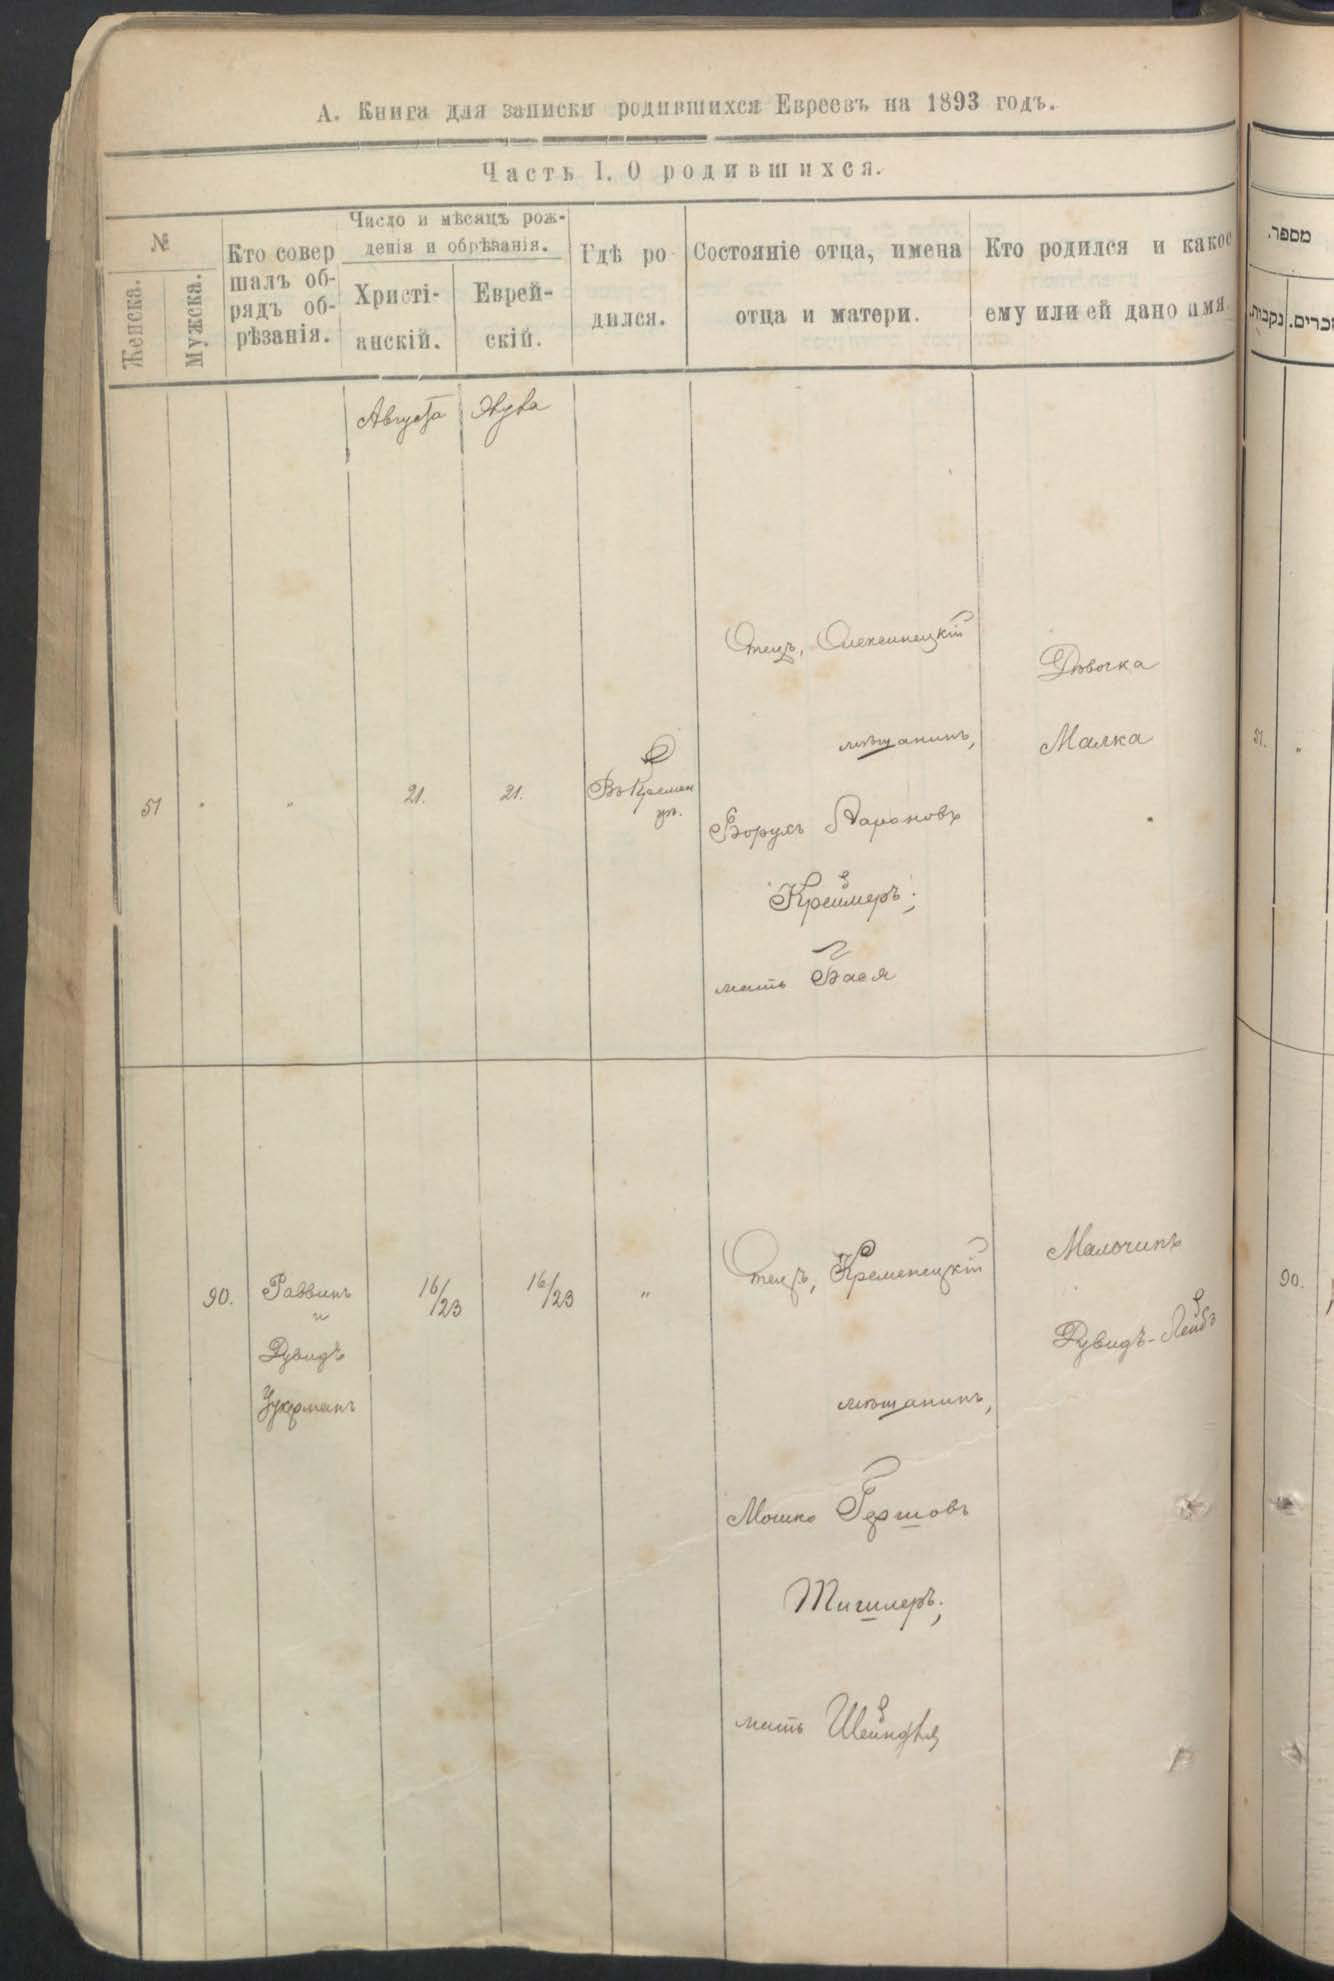 А. Книга для записки родившихся Евреевъ на 1893 годъ.
Часть I. О родившихся.
№
Женска.
Мужска.
Кто совер
шалъ об-
рядъ об-
рѣзанія.
Число и мѣсяцъ рож-
денія и обрѣзанія.
Христі-
анскій.
Еврей-
скій.
Гдѣ ро
дился.
Состояніе отца, имена
отца и матери.
Кто родился и какое
ему или ей дано имя.
Августа
Элула
51
"
"
21.
21.
Въ Кремен
цѣ.
Отецъ, Олексинецкій
мѣщанинъ,
Борухъ Аароновъ
Креймеръ;
мать Бася
Дѣвочка
Малка
90.
Раввинъ
и
Дувидъ
Цукрманъ
16/23
16/23
"
Отецъ, Кременецкій
мѣщанинъ,
Мошко Гершовъ
мать Шейндля
Мальчикъ
Дувидъ-Лейбъ
מספר.
נקבות.
זכרים.
51.
"
90.